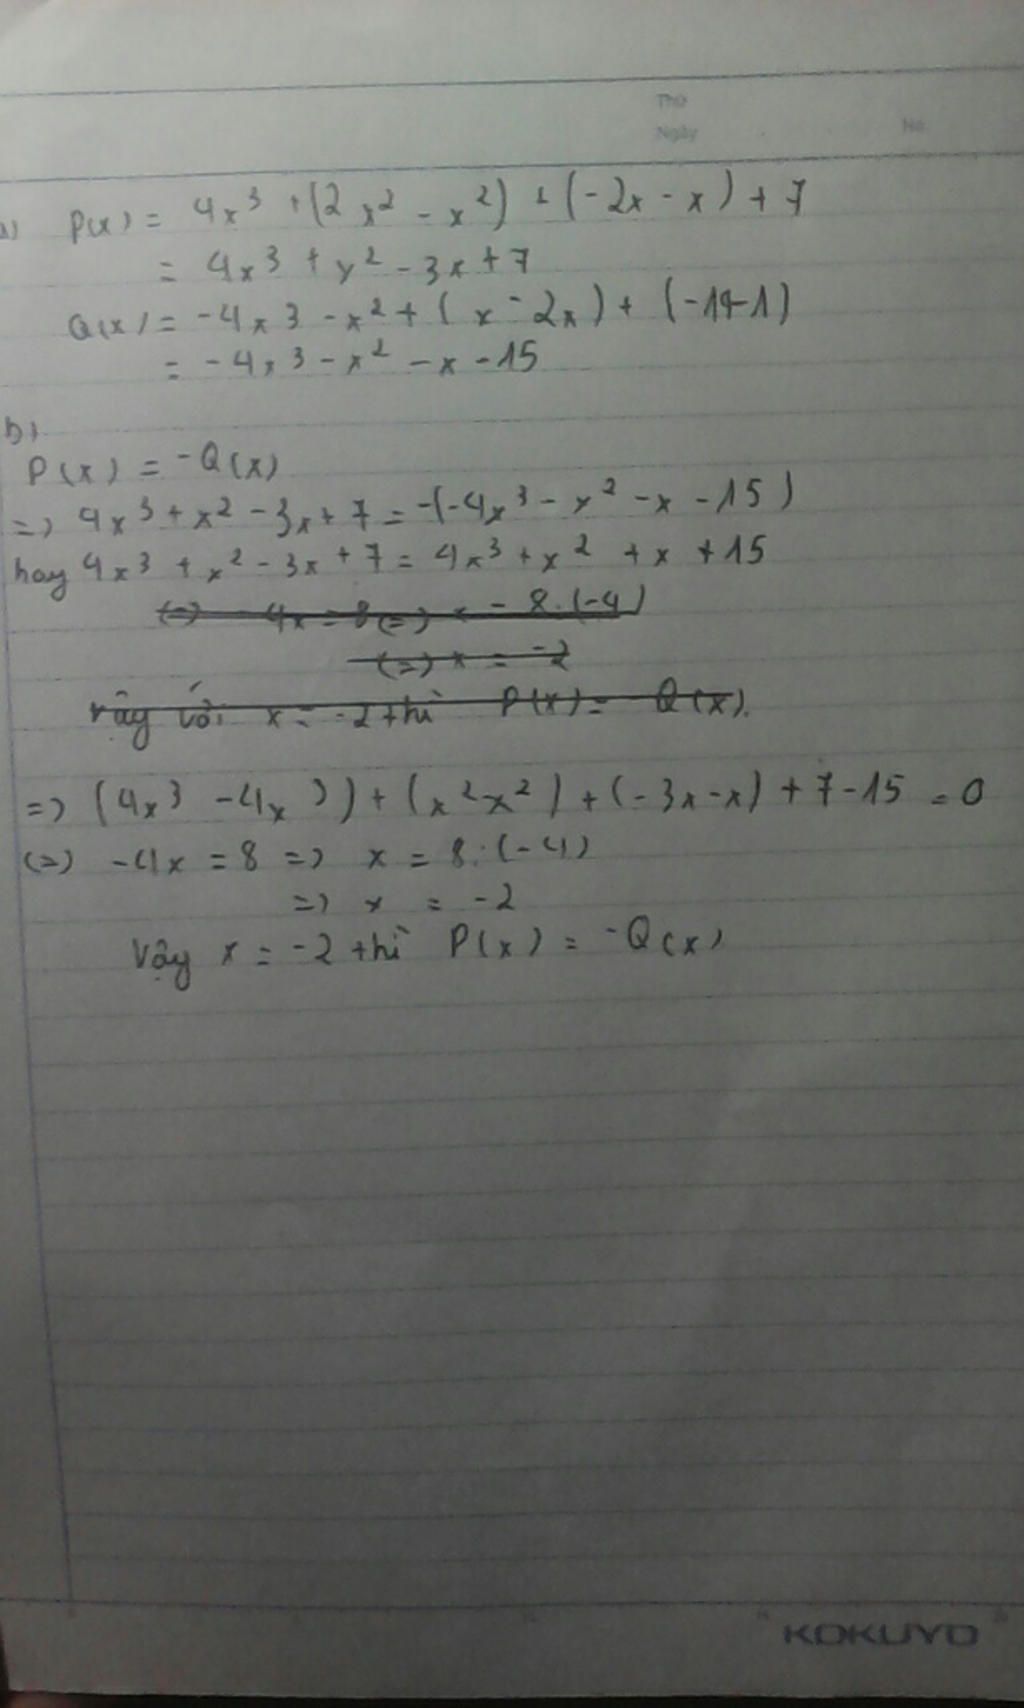 Thứ
Ngày No.
a) P(x) = 4x³ + (2x² - x²) + (-2x - x) + 7
= 4x³ + x² - 3x + 7
Q(x) = -4x³ - x² + (x - 2x) + (-14-1)
= -4x³ - x² - x - 15
b)
P(x) = -Q(x)
=> 4x³ + x² - 3x + 7 = -(-4x³ - x² - x - 15)
hay 4x³ + x² - 3x + 7 = 4x³ + x² + x + 15
(=) -4x = 8 (=) x = 8:(-4)
(=) x = -2
vậy với x = -2 thì P(x) = Q(x).
=> (4x³ - 4x³) + (x²-x²) + (-3x-x) + 7-15 = 0
(=) -4x = 8 => x = 8:(-4)
=> x = -2
Vậy x = -2 thì P(x) = -Q(x)
KOKUYO